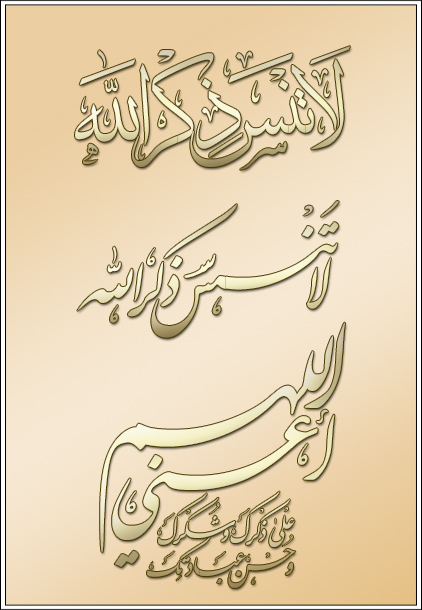 لَا تَنْسَ ذِكْرَ اللَّهِ
لَا تَنْسَ ذِكْرَ اللَّهِ
اللهم
أعني
عَلَى ذِكْرِكَ وَشُكْرِكَ
وَحُسْنِ عِبَادَتِكَ